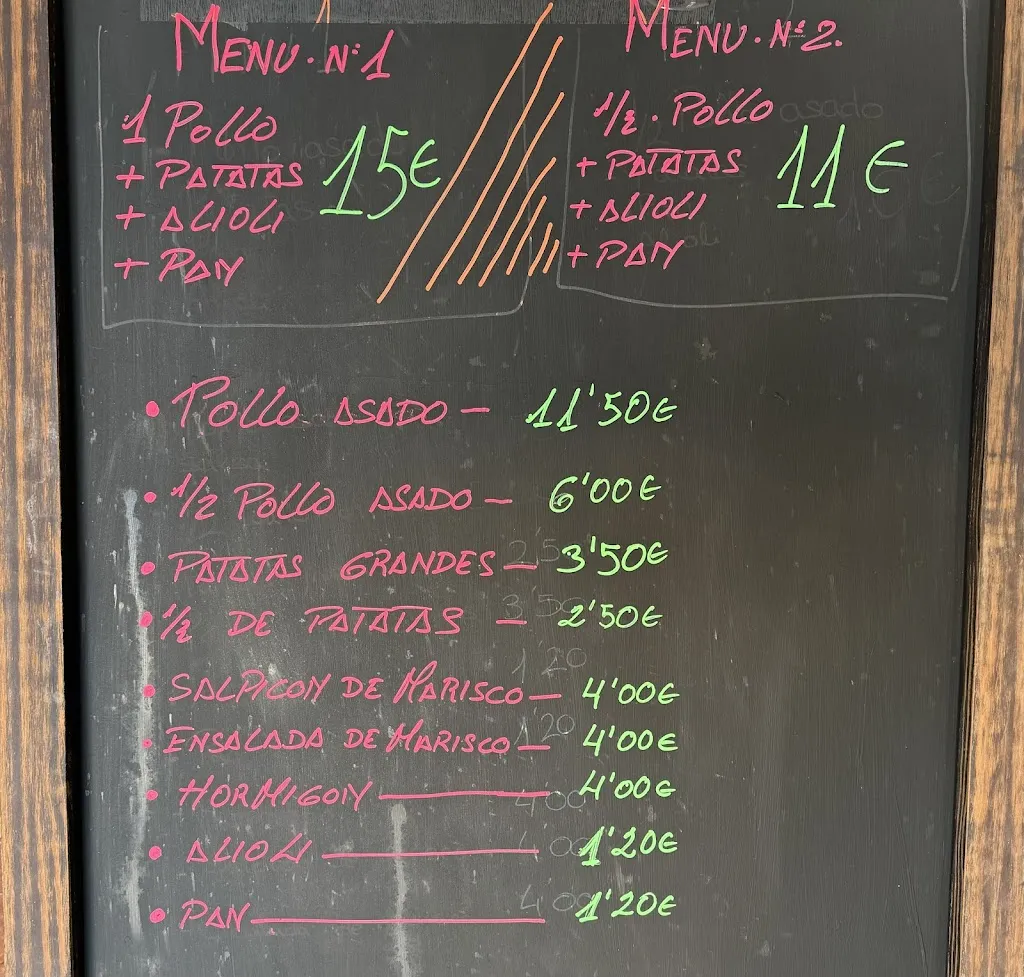 MENU · Nº 1
1 POLLO
+ PATATAS
+ ALIOLI
+ PAN
15€
MENU · Nº 2.
1/2 · POLLO
+ PATATAS
+ ALIOLI
+ PAN
11€
• POLLO ASADO — 11'50€
• 1/2 POLLO ASADO — 6'00€
• PATATAS GRANDES — 3'50€
• 1/2 DE PATATAS — 2'50€
• SALPICON DE MARISCO — 4'00€
• ENSALADA DE MARISCO — 4'00€
• HORMIGON — 4'00€
• ALIOLI — 1'20€
• PAN — 1'20€